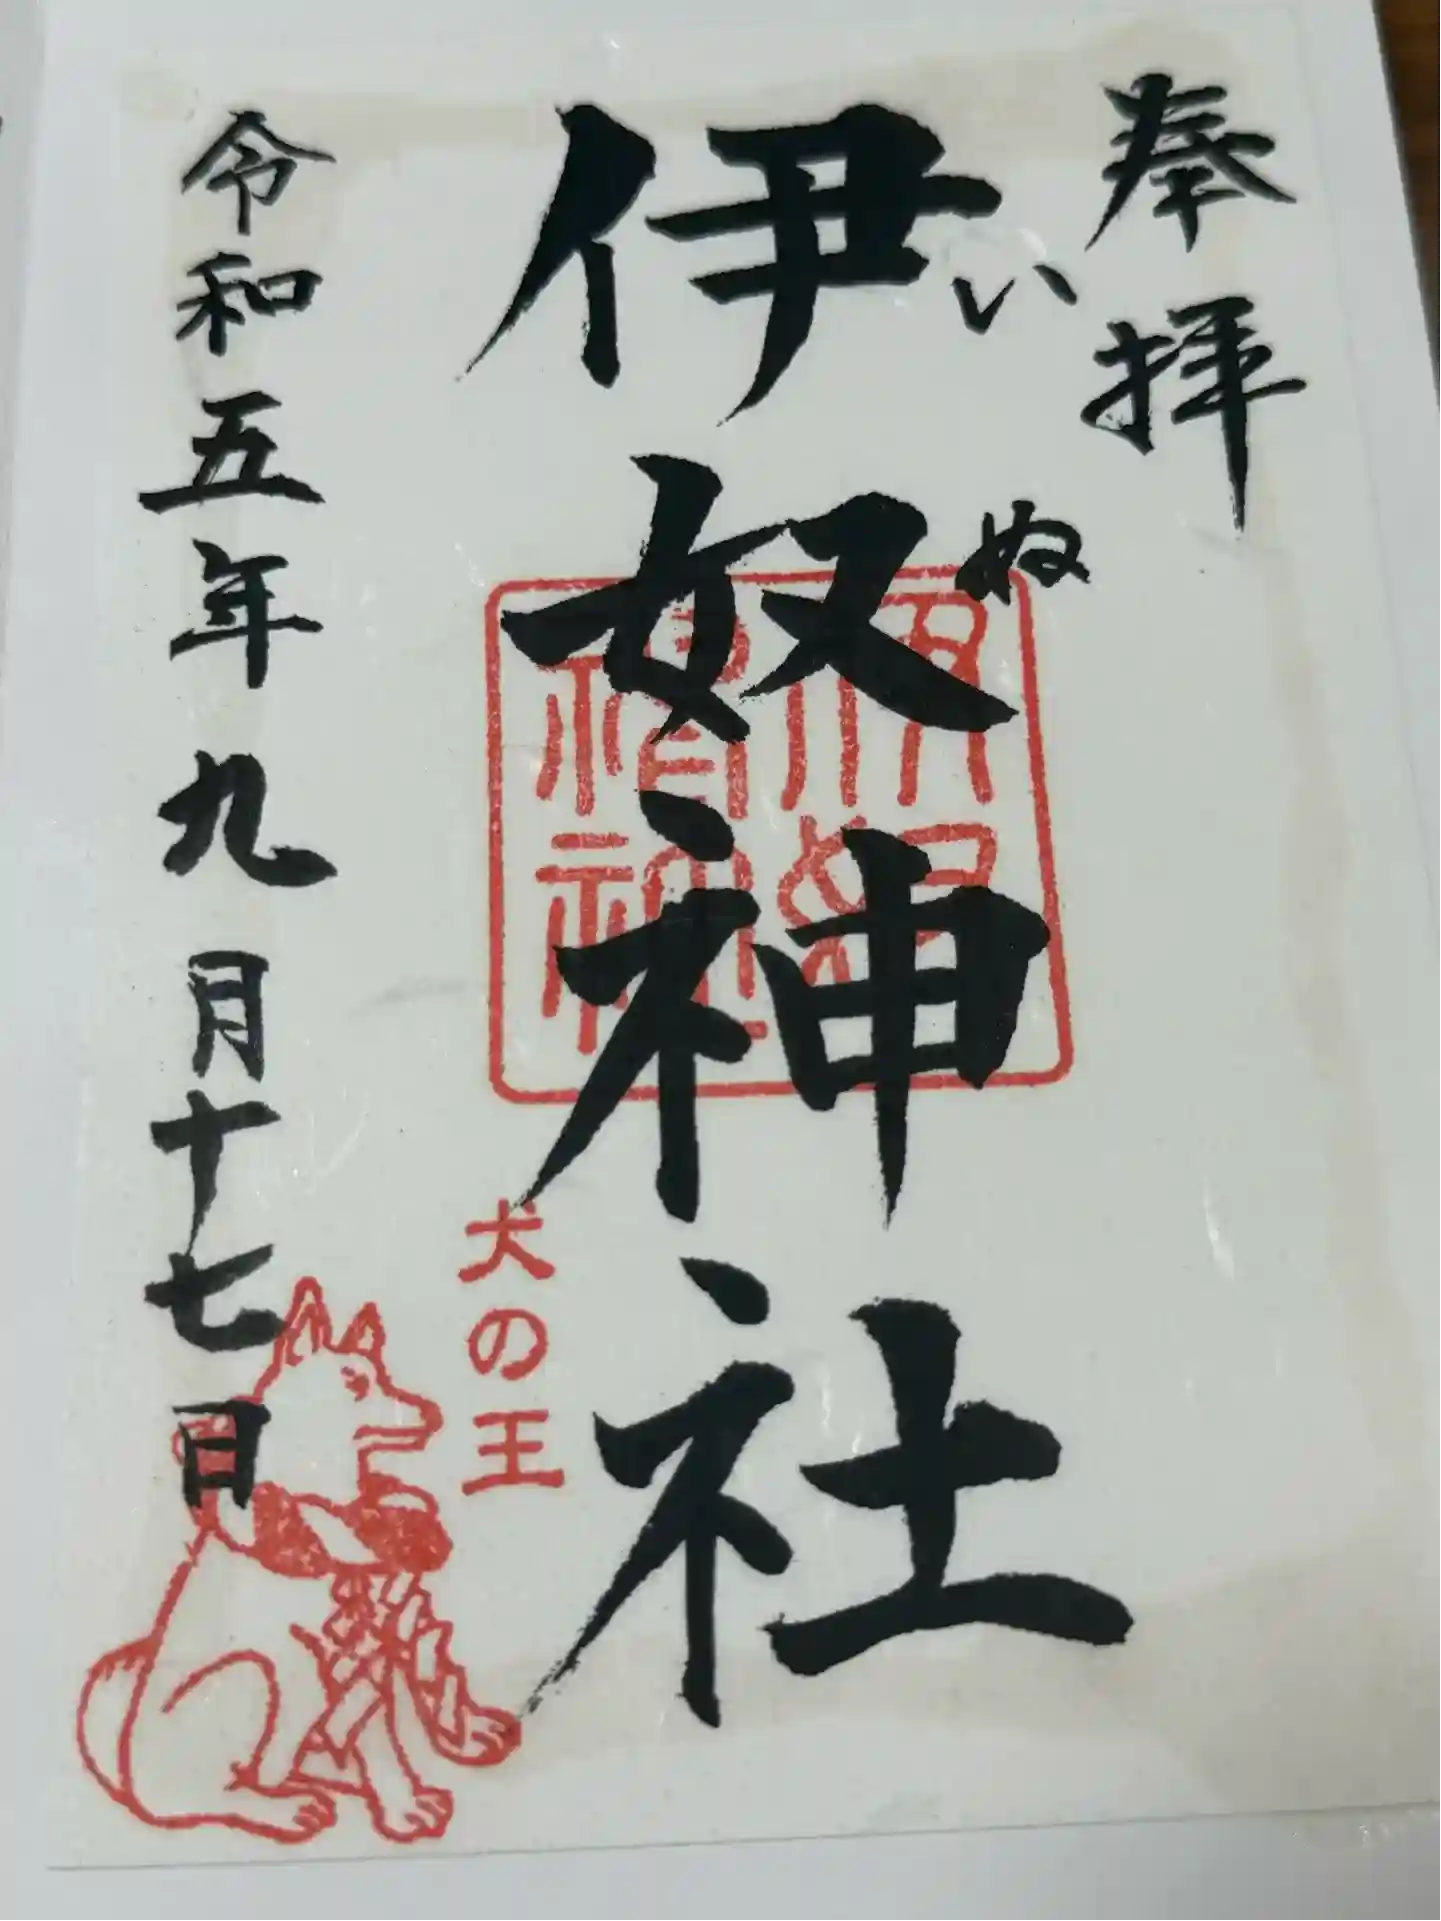 奉拝
伊奴神社
い
ぬ
犬の王
令和五年九月十七日